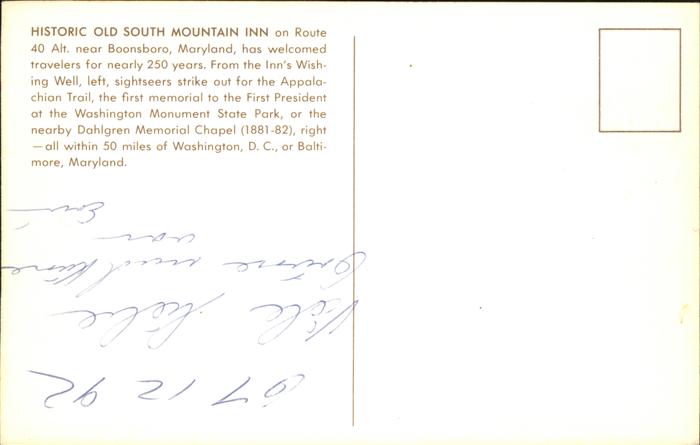 HISTORIC OLD SOUTH MOUNTAIN INN on Route
40 Alt. near Boonsboro, Maryland, has welcomed
travelers for nearly 250 years. From the Inn's Wish-
ing Well, left, sightseers strike out for the Appala-
chian Trail, the first memorial to the First President
at the Washington Monument State Park, or the
nearby Dahlgren Memorial Chapel (1881-82), right
—all within 50 miles of Washington, D. C., or Balti-
more, Maryland.
Viele liebe
von